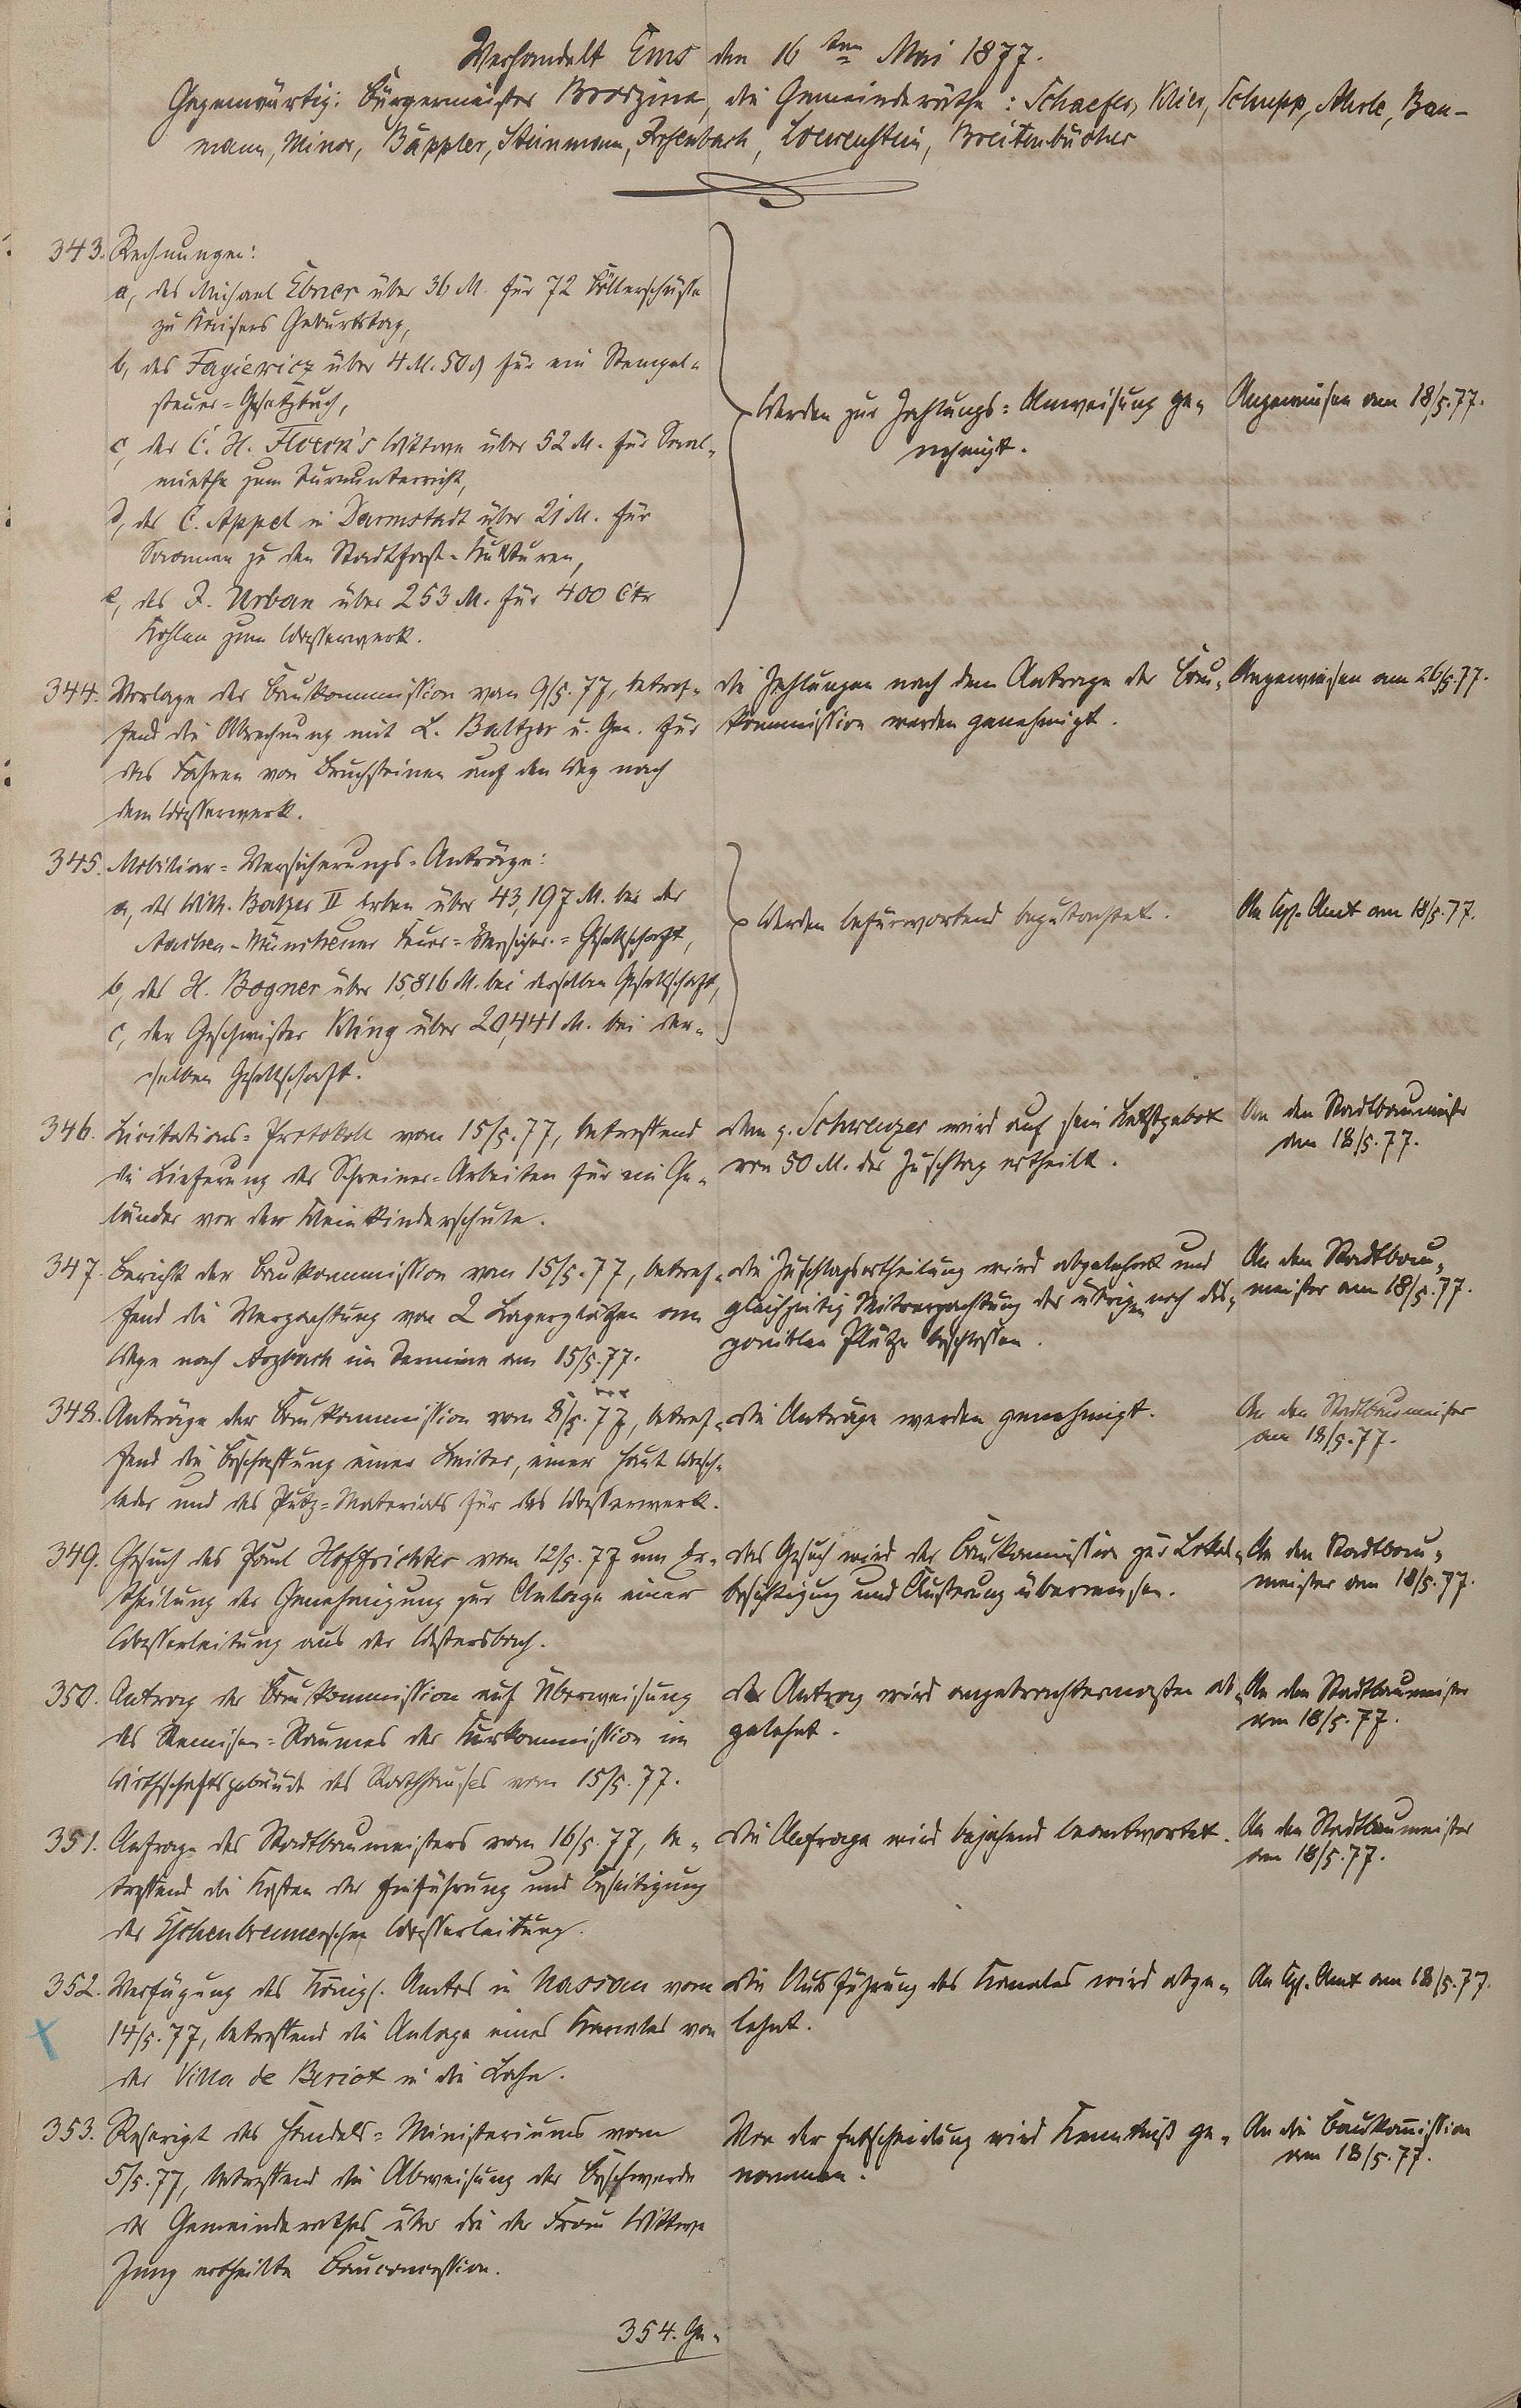 Verhandelt Ems den 16ten Mai 1877.
Gegenwärtig: Bürgermeister Brodzina, die Gemeinderäthe: Schaefer, Klier, Schupp, Merle, Bau-
mann, Minor, Bäppler, Steinmann, Loewenstein, Breitenbücher
343. Rechnungen:
a, des Michael Ebner über 36 M. für 72 Böllerschüsse
zu Kaisers Geburtstag,
b, des Fagiewicz über 4 M. 50 ₰ für ein Stempel-
steuer-Gesetzbuch,
c, der C. H. Flöck's Wittwe über 52 M. für Saal-
miethe zum Turnunterricht,
d, des C. Appel in Darmstadt über 21 M. für
Saamen zu den Stadtforst-Kulturen,
e, des J. Urban über 253 M. für 400 Ctr
Kohlen zum Wasserwerk.
Werden zur Zahlungs-Anweisung ge-
nehmigt.
Angewiesen am 18/5.77.
344. Vorlage der Baukommission vom 9/5.77, betref-
fend die Abrechnung mit L. Baltzer u. Gen. für
das Fahren von Bruchsteinen auf den Weg nach
dem Wasserwerk.
Die Zahlungen nach dem Antrage der Bau-
kommission werden genehmigt.
Angewiesen am 26/5.77.
345. Mobiliar-Versicherungs-Anträge:
a, der Wilh. Balzer II Erben über 43,197 M. bei der
Aachen-Münchener Feuer-Versicher.-Gesellschaft,
b, des H. Bogner über 15,816 M. bei derselben Gesellschaft,
c, der Geschwister Kling über 20,441 M. bei der-
selben Gesellschaft.
Werden befürwortend begutachtet.
An Kgl. Amt am 18/5.77.
346. Licitations-Protokoll vom 15/5.77, betreffend
die Lieferung der Schreiner-Arbeiten für ein Ge-
länder vor der Kleinkinderschule.
Dem p. Schwenzer wird auf sein Letztgebot
von 50 M. der Zuschlag ertheilt.
An den Stadtbaumeister
am 18/5.77.
347. Bericht der Baukommission vom 15/5.77, betref-
fend die Verpachtung von 2 Lagerplätzen am
Wege nach Arzbach im Termine am 15/5.77.
Die Zuschlagsertheilung wird abgelehnt und
gleichzeitig Mitverpachtung der übrigen noch dis-
poniblen Plätze beschlossen.
An den Stadtbau-
meister am 18/5.77.
348. Anträge der Baukommission vom 8/5.77, betref-
fend die Beschaffung einer Leiter, einer Haut Wasch-
leder und des Putz-Materials für das Wasserwerk.
Die Anträge werden genehmigt.
An den Stadtbaumeister
am 18/5.77.
349. Gesuch des Paul Hoffrichter vom 12/5.77 um Er-
theilung der Genehmigung zur Anlage einer
Wasserleitung aus der
Das Gesuch wird der Baukommission zur Lokal-
besichtigung und Äußerung überwiesen.
An den Stadtbau-
meister am 18/5.77.
350. Antrag der Baukommission auf Überweisung
des Remisen-Raumes der Kurkommission im
Wirthschaftsgebäude des Rathhauses vom 15/5.77.
Der Antrag wird angebrachtermaßen ab-
gelehnt.
An den Stadtbaumeister
am 18/5.77.
351. Anfrage des Stadtbaumeisters vom 16/5.77, be-
treffend die Kosten der Einführung und Beseitigung
der Eschenbrennerschen Wasserleitung.
Die Anfrage wird bejahend beantwortet.
An den Stadtbaumeister
am 18/5.77.
352. Verfügung des Königl. Amtes in Nassau vom
14/5.77, betreffend die Anlage eines Kanales von
der Villa de Beriot in die Lahn.
Die Ausführung des Kanales wird abge-
lehnt.
An Kgl. Amt am 18/5.77.
353. Rescript des Handels-Ministeriums vom
5/5.77, betreffend die Abweisung der Beschwerde
des Gemeinderathes über die der Frau Wittwe
Jung ertheilte Bauconcession.
Von der Entscheidung wird Kenntniß ge-
nommen.
An die Baukommission
am 18/5.77.
354. Ge-